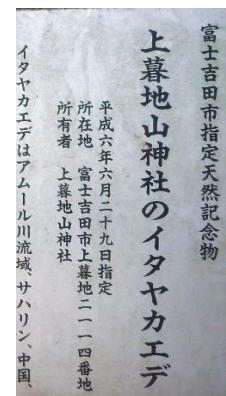 富士吉田市指定天然記念物
上暮地山神社のイタヤカエデ
平成六年六月二十九日指定
所在地　富士吉田市上暮地二一一四番地
所有者　上暮地山神社
イタヤカエデはアムール川流域、サハリン、中国、